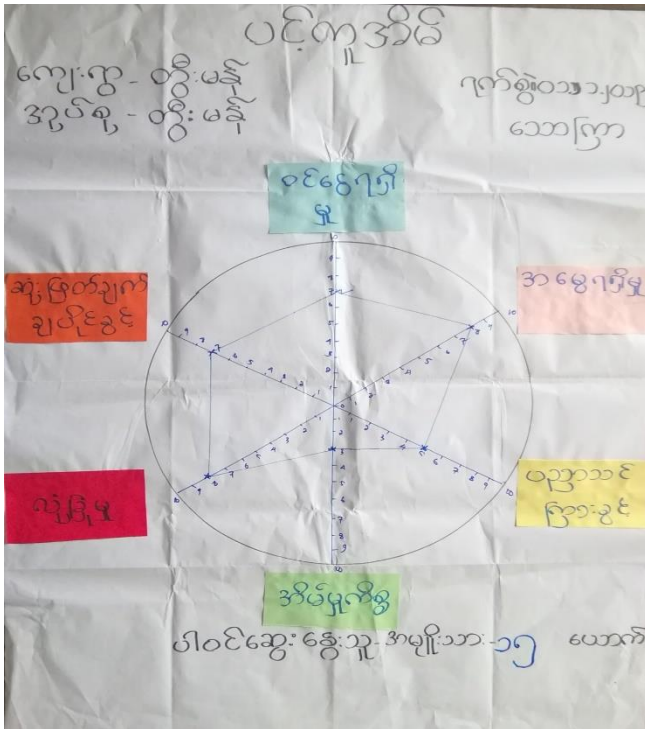 ပင့်ကူအိမ်
ကျေးရွာ - တွီးမန့်
အုပ်စု - တွီးမန့်
သောကြာ
ဝင်ငွေရရှိ
မှု
ဆုံးဖြတ်ချက်
ချပိုင်ခွင့်
အမွေရရှိမှု
လုံခြုံမှု
ပညာသင်
ကြားခွင့်
အိမ်မှုကိစ္စ
ပါဝင်ဆွေးနွေးသူ-အမျိုးသား-၁၅ ယောက်